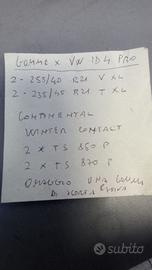 GOMME X VW ID4 PRO
2 - 255/40 R21 V XL
2 - 235/45 R21 T XL
CONTINENTAL
WINTER CONTACT
2 x TS 850 P
2 x TS 870 P
OMAGGIO UNA GOMMA
DI SCORTA
subito